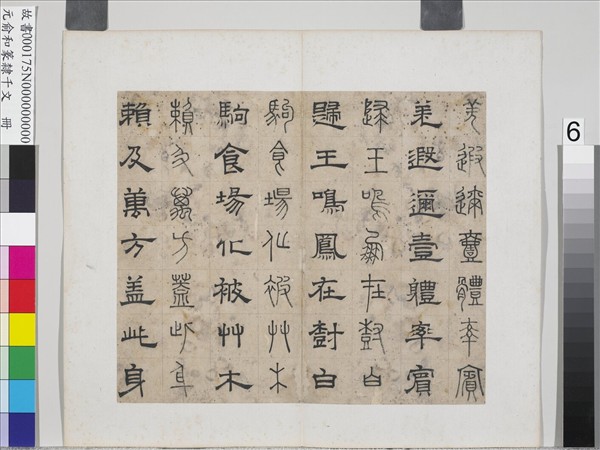 羌遐邇壹體率賓
羌遐邇壹體率賓
歸王鳴鳳在尌白
歸王鳴鳳在尌白
駒食場化被艸木
駒食場化被艸木
賴及萬方蓋此身
賴及萬方盖此身
故書000175N000000000
元俞和篆隸千文 冊
6